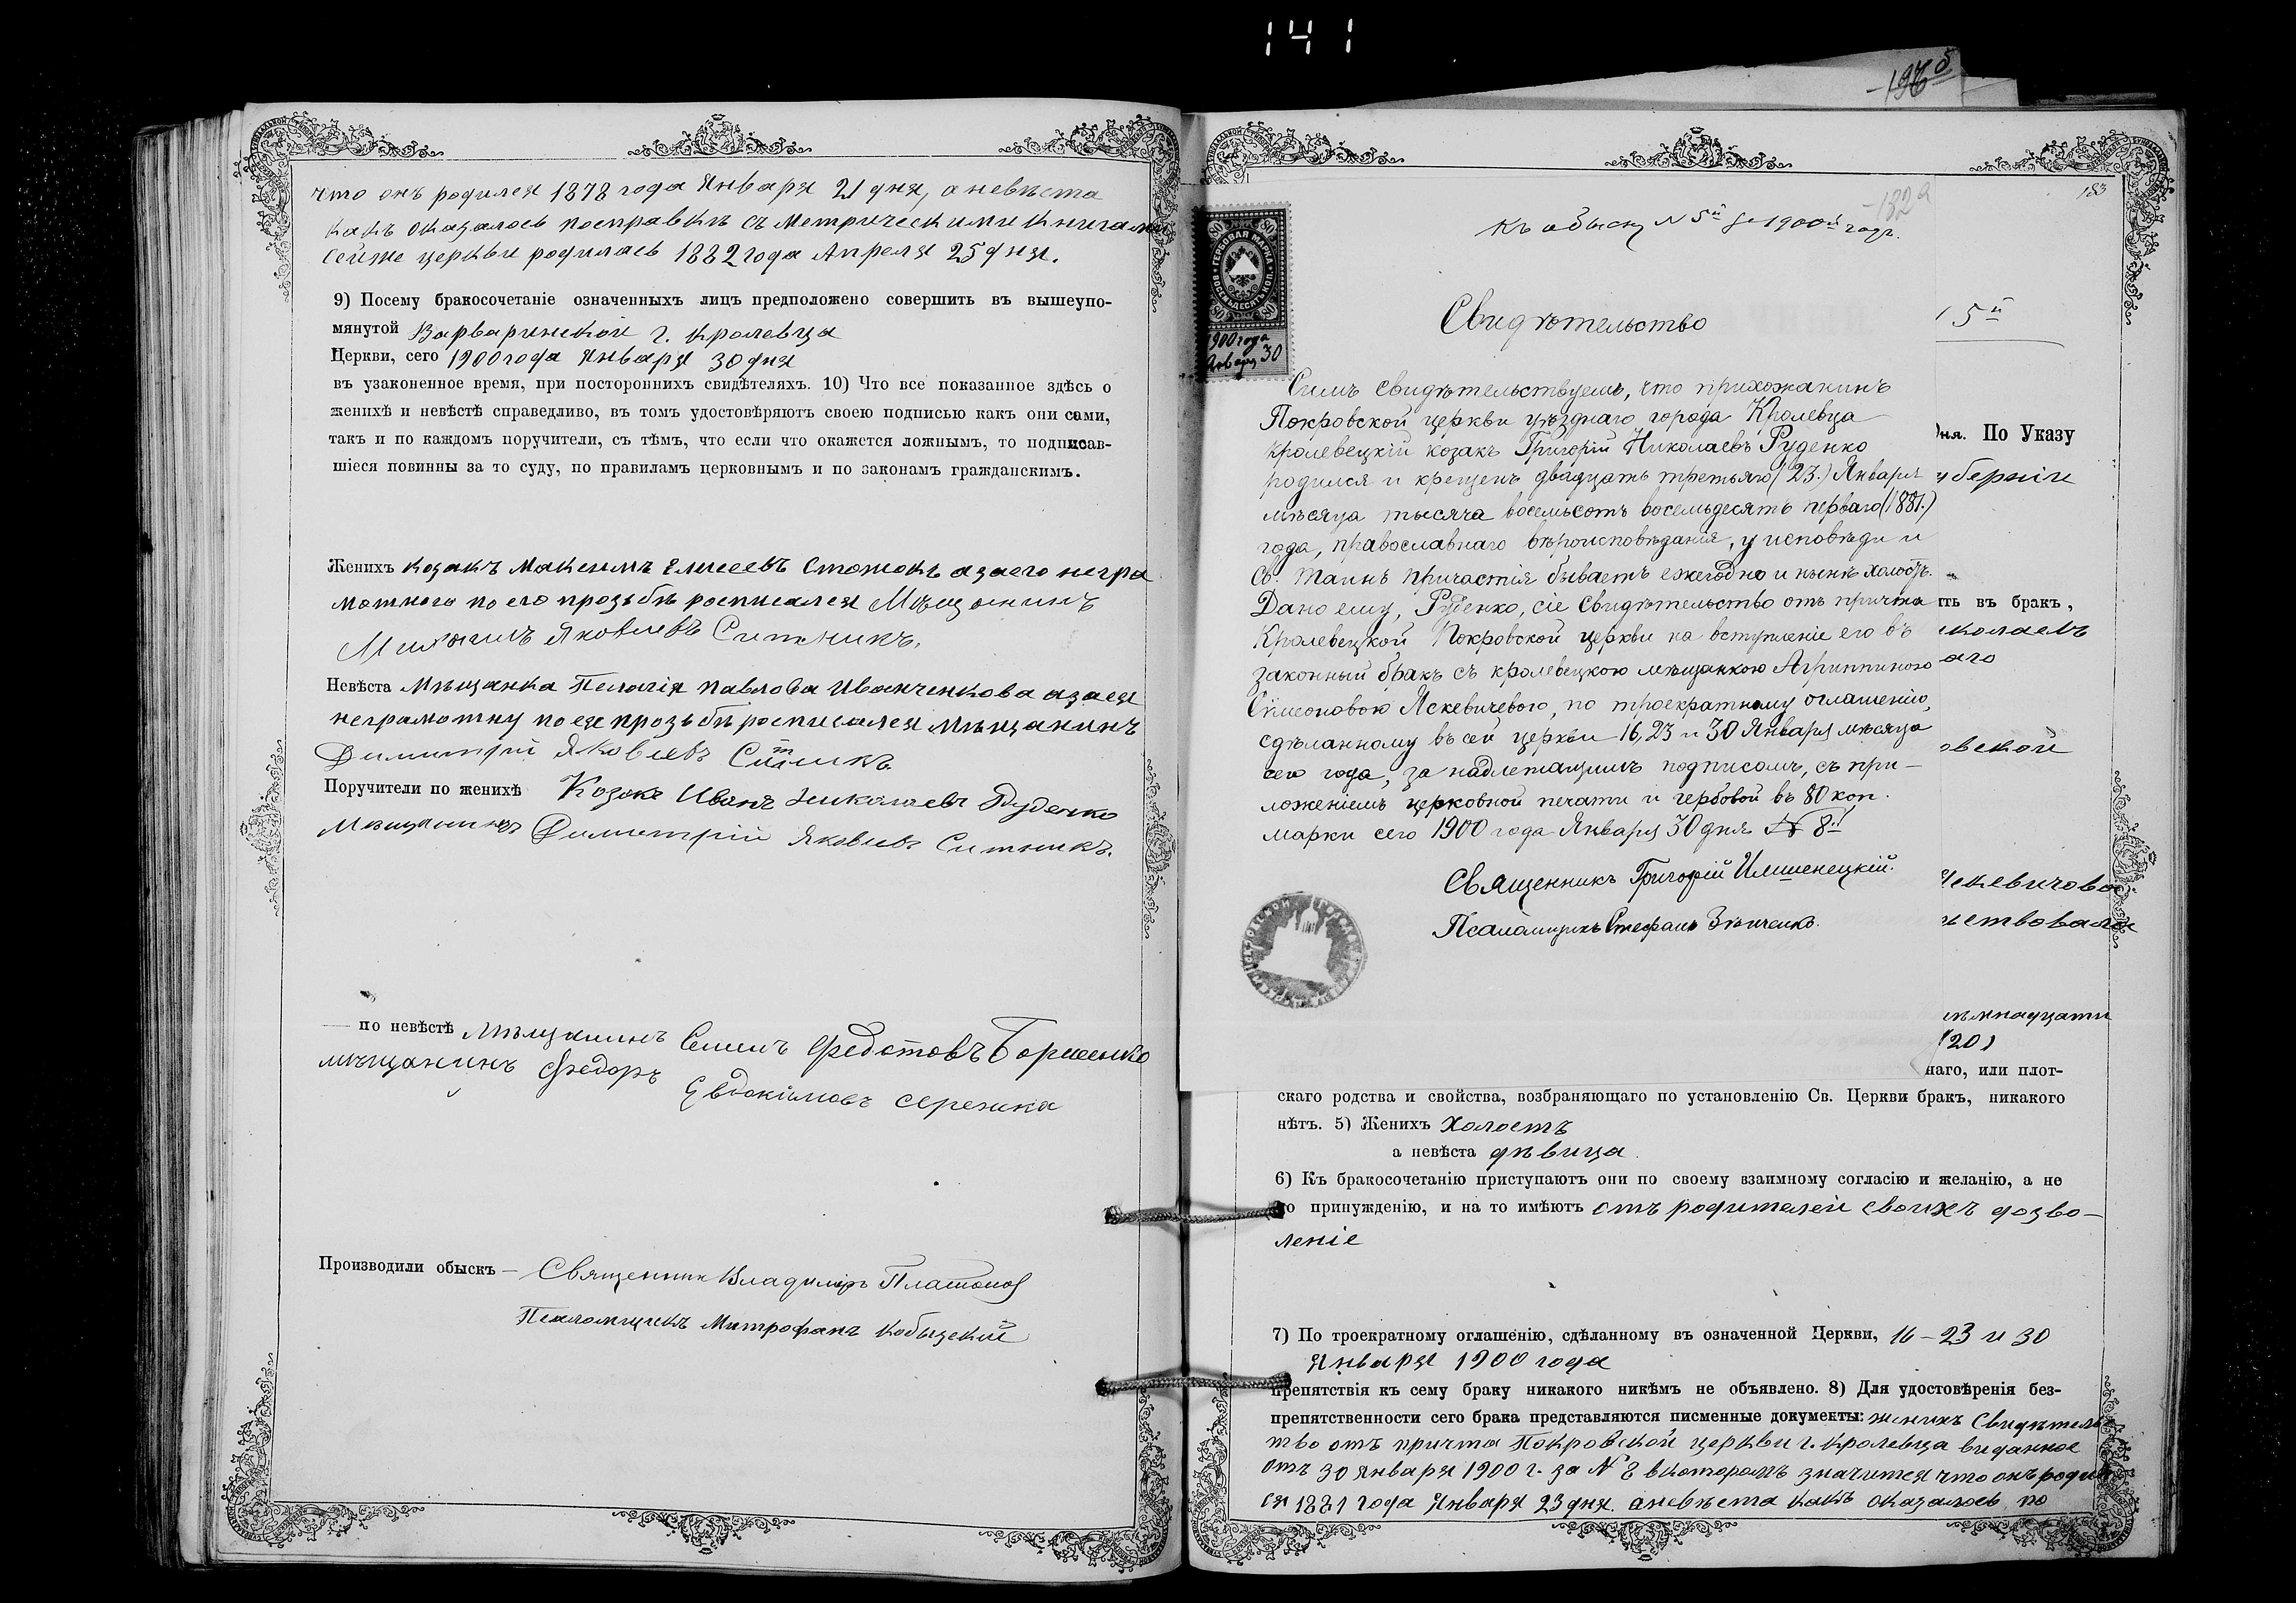 141
что онъ родился 1878 года Января 21 дня, а невѣста
какъ оказалось посправкѣ съ метрическими книгами
сейже церкви родилась 1882 года Апреля 25 дня.
9) Посему бракосочетаніе означенныхъ лицъ предположено совершить въ вышеупо-
мянутой Варваринской г. Кролевца
Церкви, сего 1900 года Января 30 дня
въ узаконенное время, при постороннихъ свидѣтеляхъ. 10) Что все показанное здѣсь о
женихѣ и невѣстѣ справедливо, въ томъ удостовѣряютъ своею подписью какъ они сами,
такъ и по каждомъ поручители, съ тѣмъ, что если что окажется ложнымъ, то подписав-
шіеся повинны за то суду, по правиламъ церковнымъ и по законамъ гражданскимъ.
Женихъ козакъ Максимъ Елисеевъ Стожокъ азаего негра
мотного по его прозьбѣ росписался Мѣщанинъ
Яковлевъ Ситникъ.
Невѣста Мѣщанка Пелагія Павлова Иванченкова азаея
неграмотну по ея прозьбѣ росписался мѣщанинъ
Димитрій Яковлевъ Ситникъ.
Поручители по женихѣ Козакъ Иванъ Николаевъ Руденко
Мѣщанинъ Димитрій Яковлевъ Ситникъ.
— по невѣстѣ Мѣщанинъ Семенъ Федотовъ
мѣщанинъ Федоръ Евдокімовъ
Производили обыскъ — Священник Владиміръ Платонов
Псаломщикъ Митрофанъ Кобызскій
183
-182а
Къ обыску N 5й за 1900й годъ.
ГЕРБОВАЯ МАРКА
ВОСЕМЬДЕСЯТЪ КОП.
80
1900 года
Января 30
Свидѣтельство
5й
Симъ свидѣтельствуемъ, что прихожанинъ
Покровской церкви уѣзднаго города Кролевца
кролевецкій козакъ Григорій Николаевъ Руденко
дня. По Указу
родился и крещенъ двадцать третьяго (23.) Января
уберніи
мѣсяца тысяча восемьсотъ восемьдесятъ перваго (1881.)
года, православнаго вѣроисповѣданія, у исповѣди и
Св. Таинъ причастія бываетъ ежегодно и нынѣ холостъ.
Дано ему, Руденко, сіе свидѣтельство отъ причта
ть въ бракъ,
Кролевецкой Покровской церкви на вступленіе его въ
иколаевъ
законный бракъ съ кролевецкою мѣщанкою Агриппиною
аго
Сѵмеоновою Яскевичевою, по троекратному оглашенію,
сдѣланному въ сей церкви 16, 23 и 30 Января мѣсяца
овской
сего года, за надлежащимъ подписомъ, съ при-
ложеніемъ церковной печати и гербовой въ 80 коп.
марки сего 1900 года Января 30 дня № 8й
Священникъ Григорій Илшенецкій.
Псаломщикъ Стефанъ Зѣнченко.
(20)
наго, или плот-
скаго родства и свойства, возбраняющаго по установленію Св. Церкви бракъ, никакого
нѣтъ. 5) Женихъ Холостъ
а невѣста дѣвица.
6) Къ бракосочетанію приступаютъ они по своему взаимному согласію и желанію, а не
по принужденію, и на то имѣютъ отъ родителей своихъ дозво-
леніе
7) По троекратному оглашенію, сдѣланному въ означенной Церкви, 16 – 23 и 30
Января 1900 года
препятствія къ сему браку никакого никѣмъ не объявлено. 8) Для удостовѣренія без-
препятственности сего брака представляются писменные документы: женихъ Свидѣтельс
тво отъ причта Покровской церкви г. Кролевца виданное
отъ 30 Января 1900 г. за N 8 вкоторомъ значится что онъ родил
ся 1881 года Января 23 дня. аневѣста какъ оказалось по